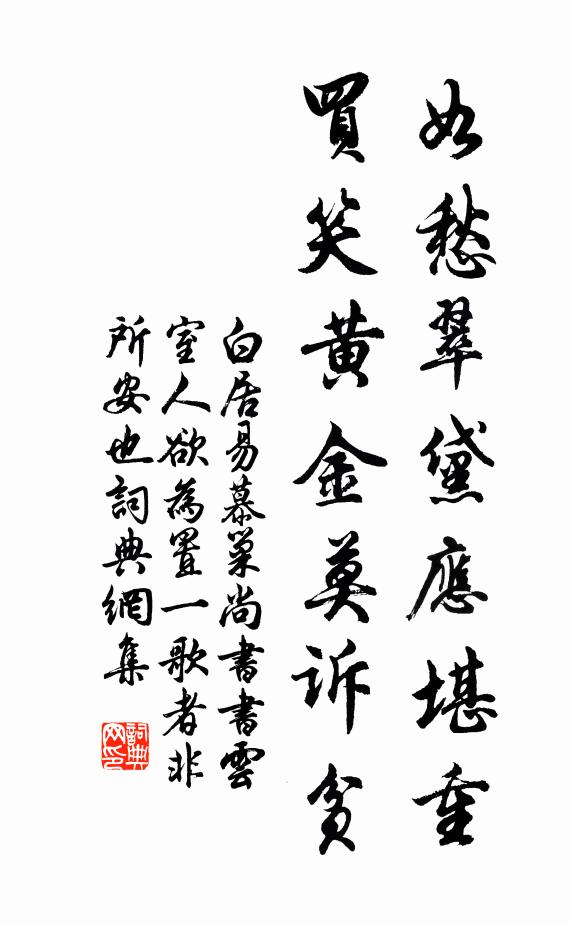 如愁翠黛應堪重
買笑黄金莫訴貧
白居易慕巢尚書書雲
室人欲為置一歌者非
所安也詞典網集
詞典网印